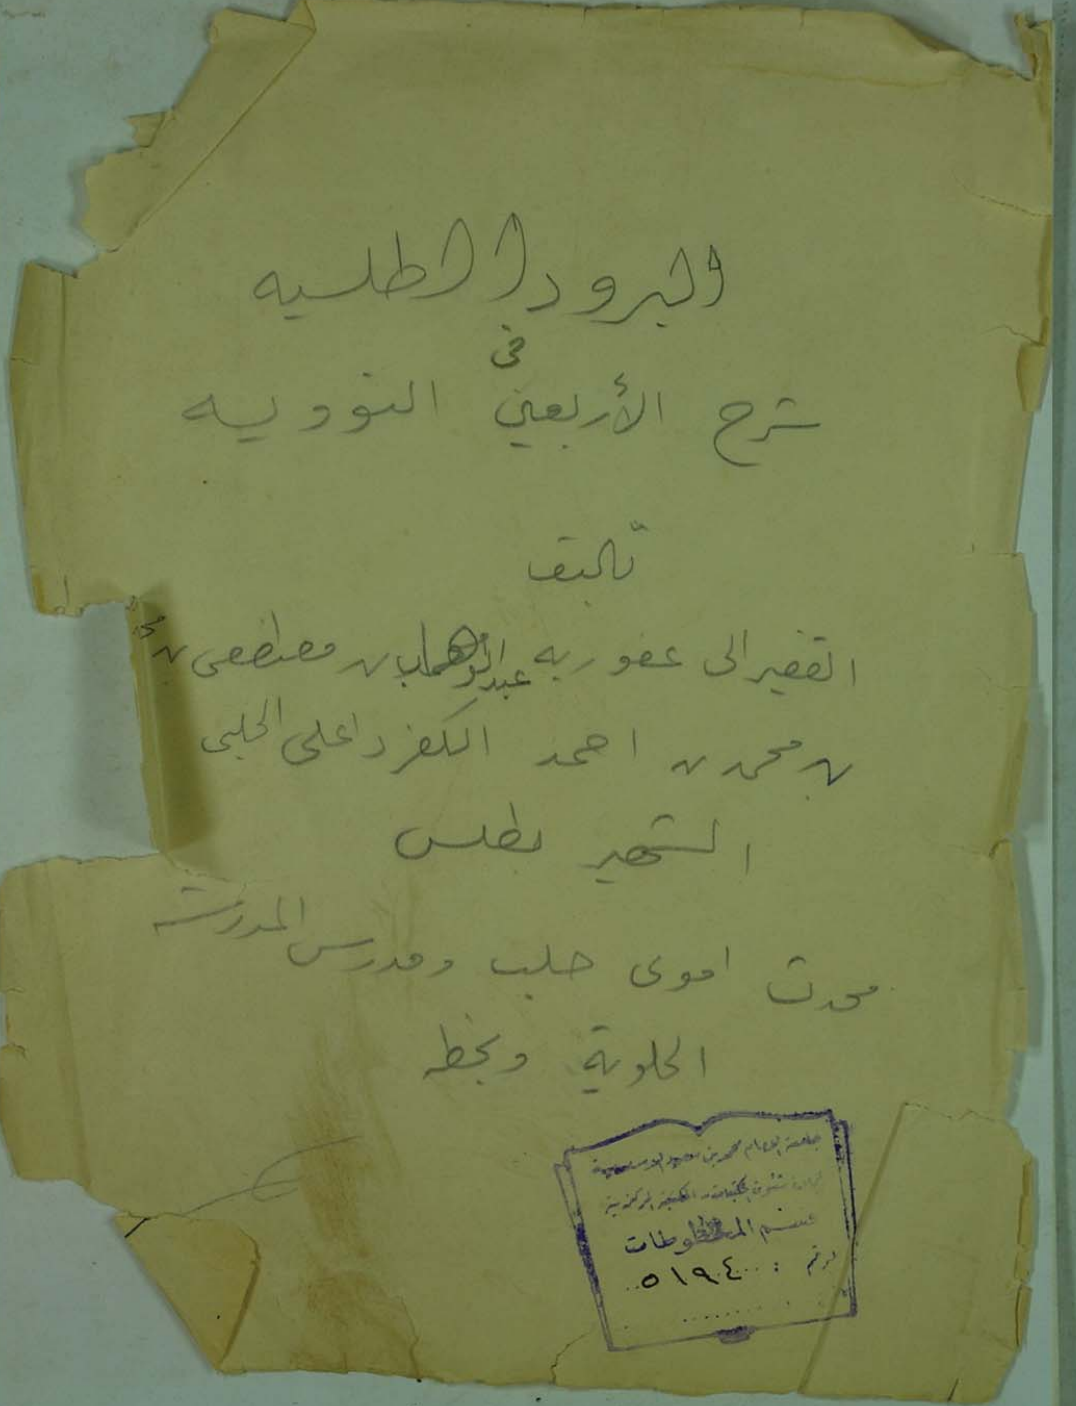 البرود الطلسيه
في
شرح الأربعين النوويه
تأليف
الفقير الى عفو ربه عبدالوهاب بن مصطفى بن
بن محمد بن احمد الكفرداعلى الحلبى
الشهير بطلس
محدث اموى حلب ومدرس المدرسة
الحلوية وبخطه
جامعة الإمام محمد بن سعود الإسلامية
عمادة شئون المكتبات - المكتبة المركزية
قسم المخطوطات
رقم : ٥١٩٤